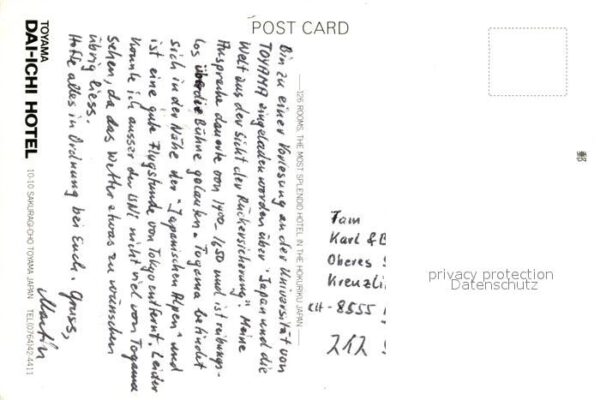 POST CARD
Bin zu einer Vorlesung an der Universität von
TOYAMA eingeladen worden über "Japan und die
Welt aus der Sicht der Rückversicherung". Meine
Ansprache dauerte von 1400-1630 und ist reibungs-
los über die Bühne gelaufen. Toyama befindet
sich in der Nähe der "Japanischen Alpen" und
ist eine gute Flugstunde von Tokyo entfernt. Leider
konnte ich ausser der UNI nicht viel von Toyama
sehen, da das Wetter etwas zu wünschen
übrig liess.
Hoffe alles in Ordnung bei Euch. Gruss,
Martin
TOYAMA
DAI-ICHI HOTEL
10-10 SAKURAGI-CHO TOYAMA JAPAN TEL.(0764)42-4411
126 ROOMS, THE MOST SPLENDID HOTEL IN THE HOKURIKU JAPAN
Fam
Karl & B
Oberes
Kreuzli
CH-8555
212
privacy protection
Datenschutz